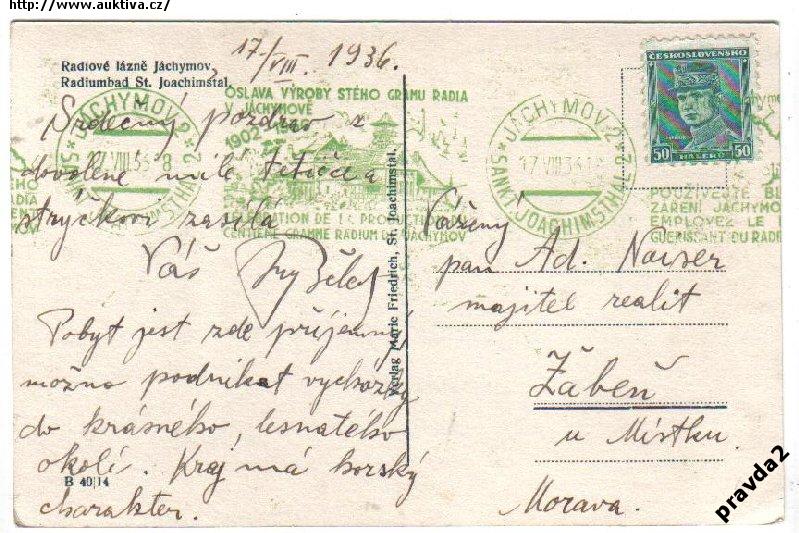 http://www.auktiva.cz/
Radiové lázně Jáchymov.
Radiumbad St. Joachimstal.
17/VIII. 1936.
OSLAVA VÝROBY STÉHO GRAMU RADIA
V JÁCHYMOVĚ
1902
JÁCHYMOV 2
SANKT JOACHIMSTHAL 2
Srdečný pozdrav z
dovolené milé tetičce a
strýčkovi zasílá
CENTIÈME GRAMME RADIUM DE JÁCHYMOV
Váš
Pobyt jest zde příjemný,
možno podnikat vycházky
do krásného, lesnatého
okolí. Kraj má horský
charakter.
B 40|14
Verlag Marie Friedrich, St. Joachimstal.
JÁCHYMOV 2
17.VIII.36
SANKT JOACHIMSTHAL 2
ČESKOSLOVENSKO
50 HALÉŘŮ 50
POUŽÍVEJTE
ZÁŘENÍ JÁCHYMO
EMPLOYEZ LE
GUERISSANT DU RADI
Vážený
pan Ad. Navser
majitel realit
Žabeň
u Místku.
Morava.
pravda2